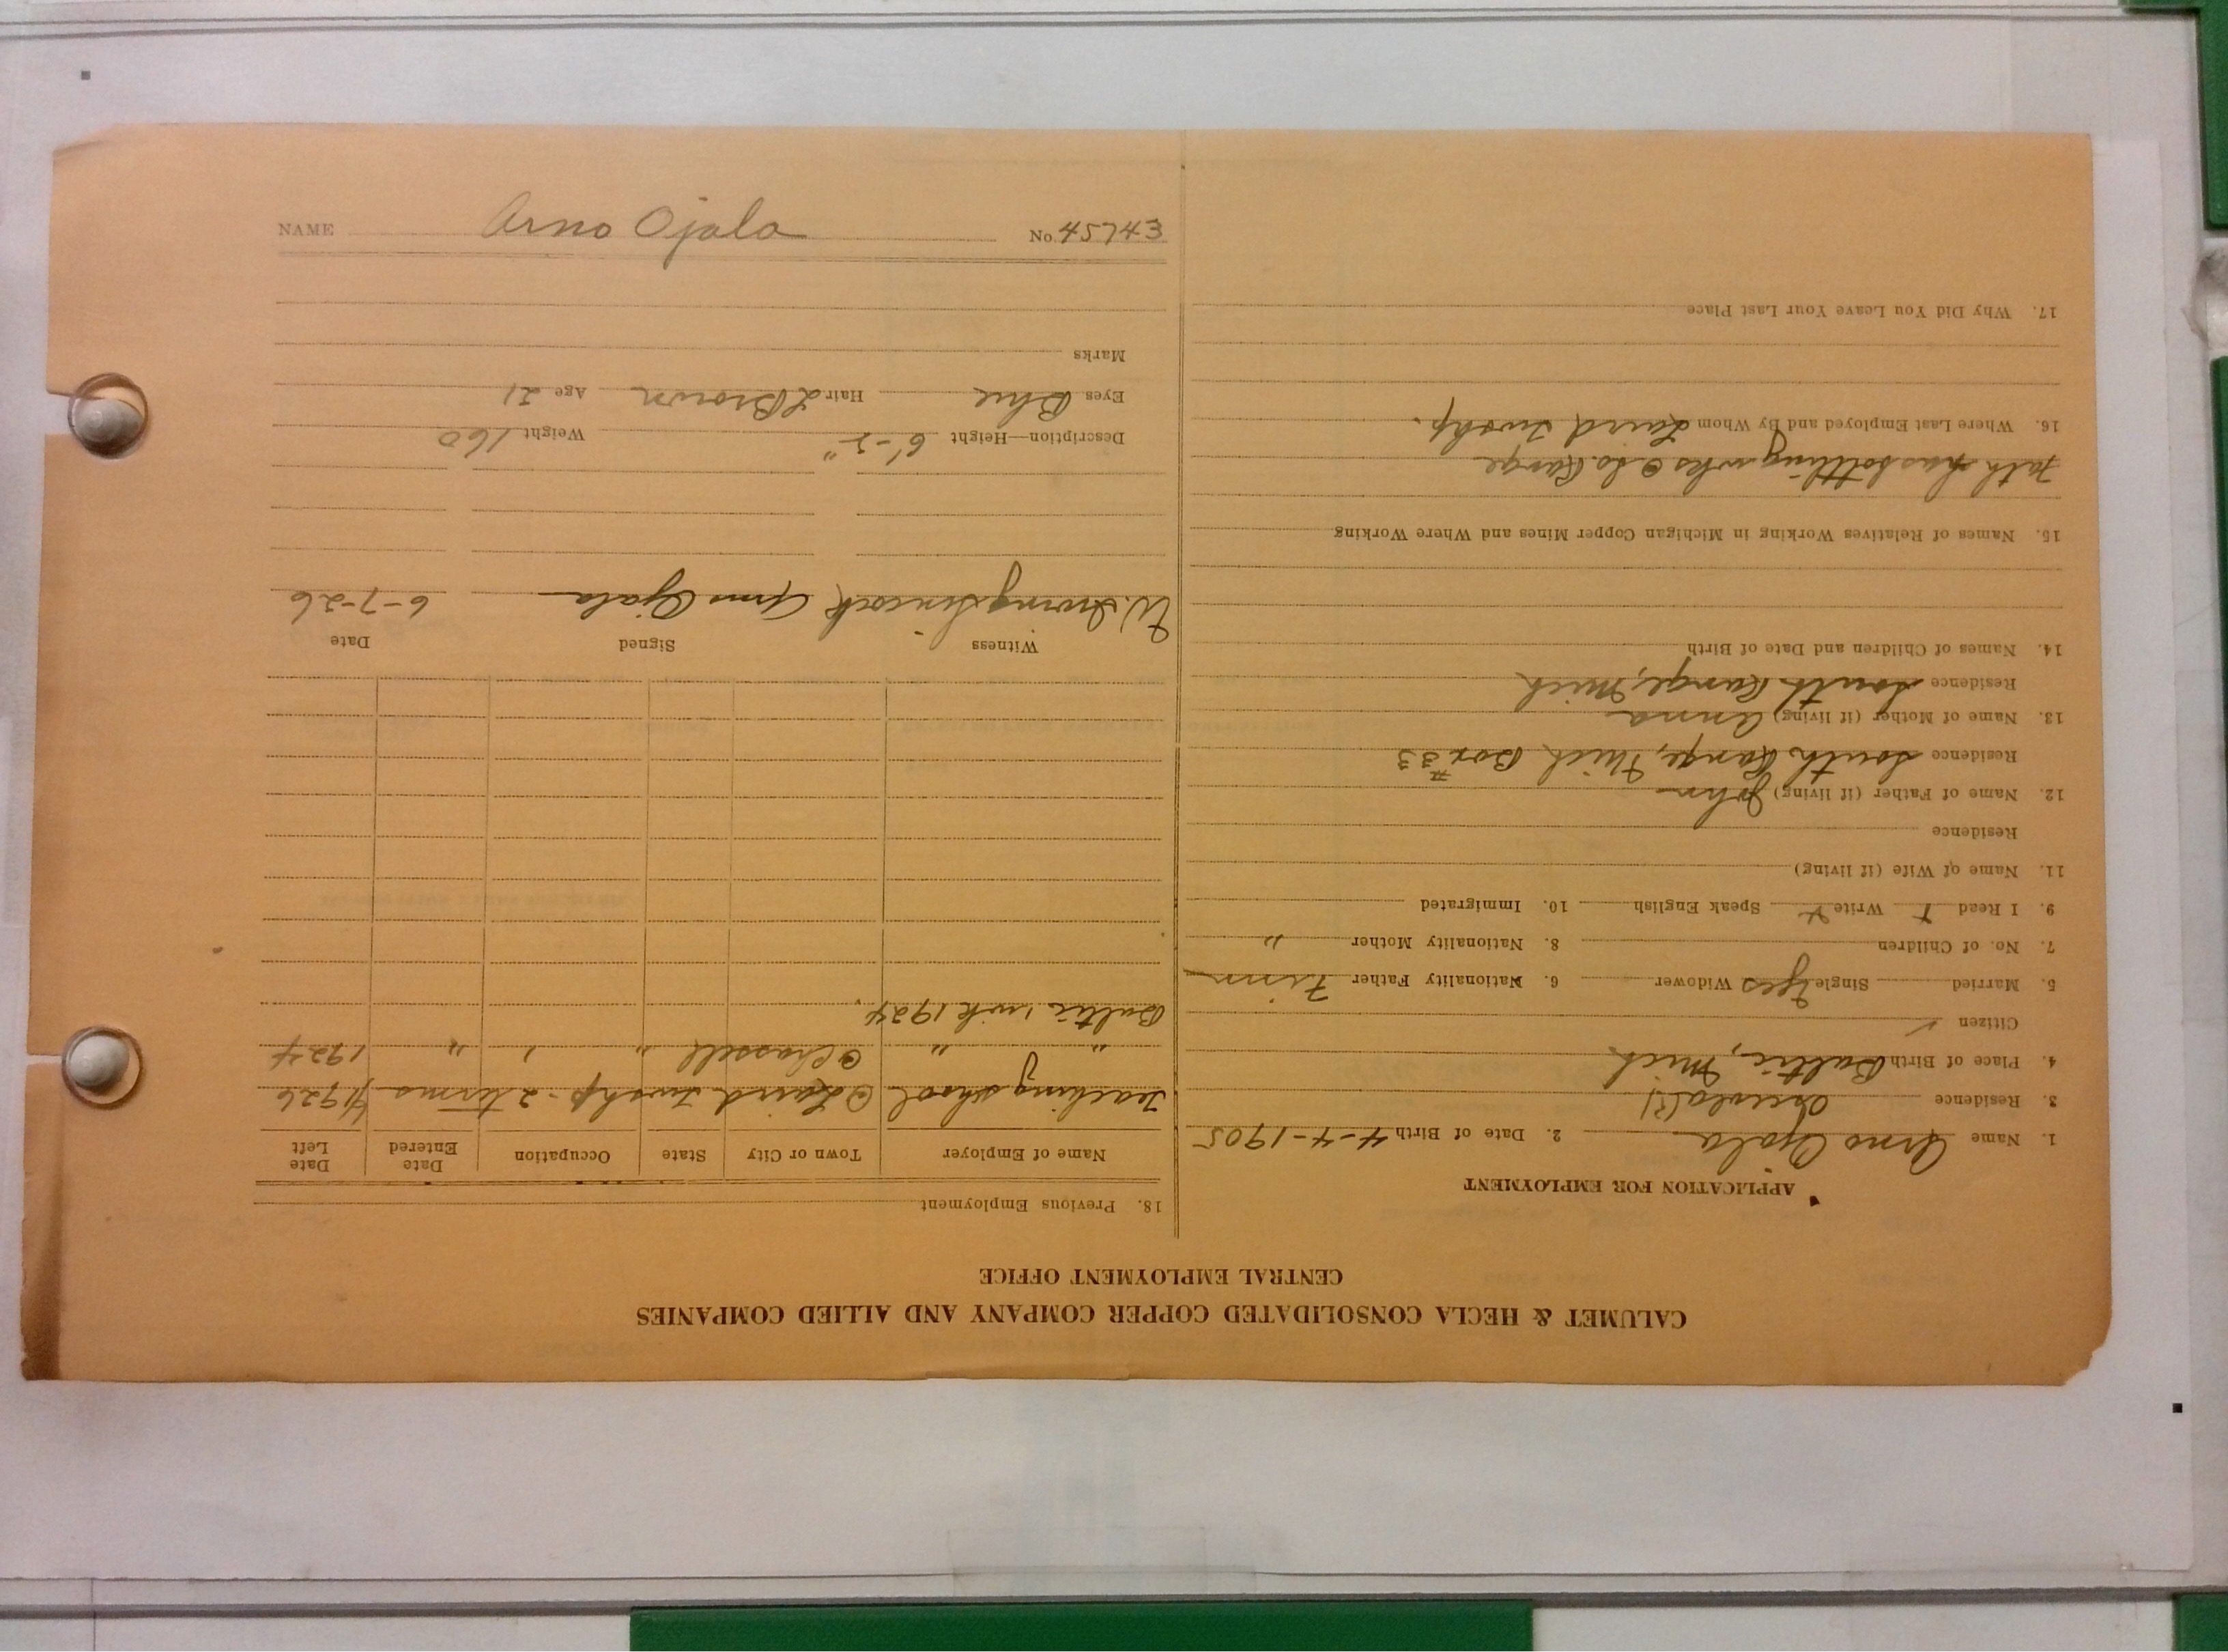 NAME Arno Ojala No. 45743
CALUMET & HECLA CONSOLIDATED COPPER COMPANY AND ALLIED COMPANIES
CENTRAL EMPLOYMENT OFFICE
APPLICATION FOR EMPLOYMENT
1. Name Arno Ojala 2. Date of Birth 4-4-1905
3. Residence Osceola
4. Place of Birth Baltic, Mich.
Citizen ✓
5. Married Single yes Widower 6. Nationality Father Finn
7. No. of Children 8. Nationality Mother "
9. I Read + Write + Speak English 10. Immigrated
11. Name of Wife (if living)
Residence
12. Name of Father (if living) John
Residence South Range, Mich Box #33
13. Name of Mother (if living) Anna
Residence South Range, Mich
14. Names of Children and Date of Birth
15. Names of Relatives Working in Michigan Copper Mines and Where Working
Fath has bottling wks @ So. Range
16. Where Last Employed and By Whom Laird Twshp.
17. Why Did You Leave Your Last Place
18. Previous Employment
Name of Employer Town or City State Occupation Date Entered Date Left
Teaching school @ Laird Twshp - 2 terms 1926
" " @ Chassell " " " 1924
Baltic 1 wk 1924.
Witness Signed Date
W. Irving Sincock Arno Ojala 6-7-26
Description—Height 6'-2" Weight 160
Eyes Blue Hair L Brown Age 21
Marks